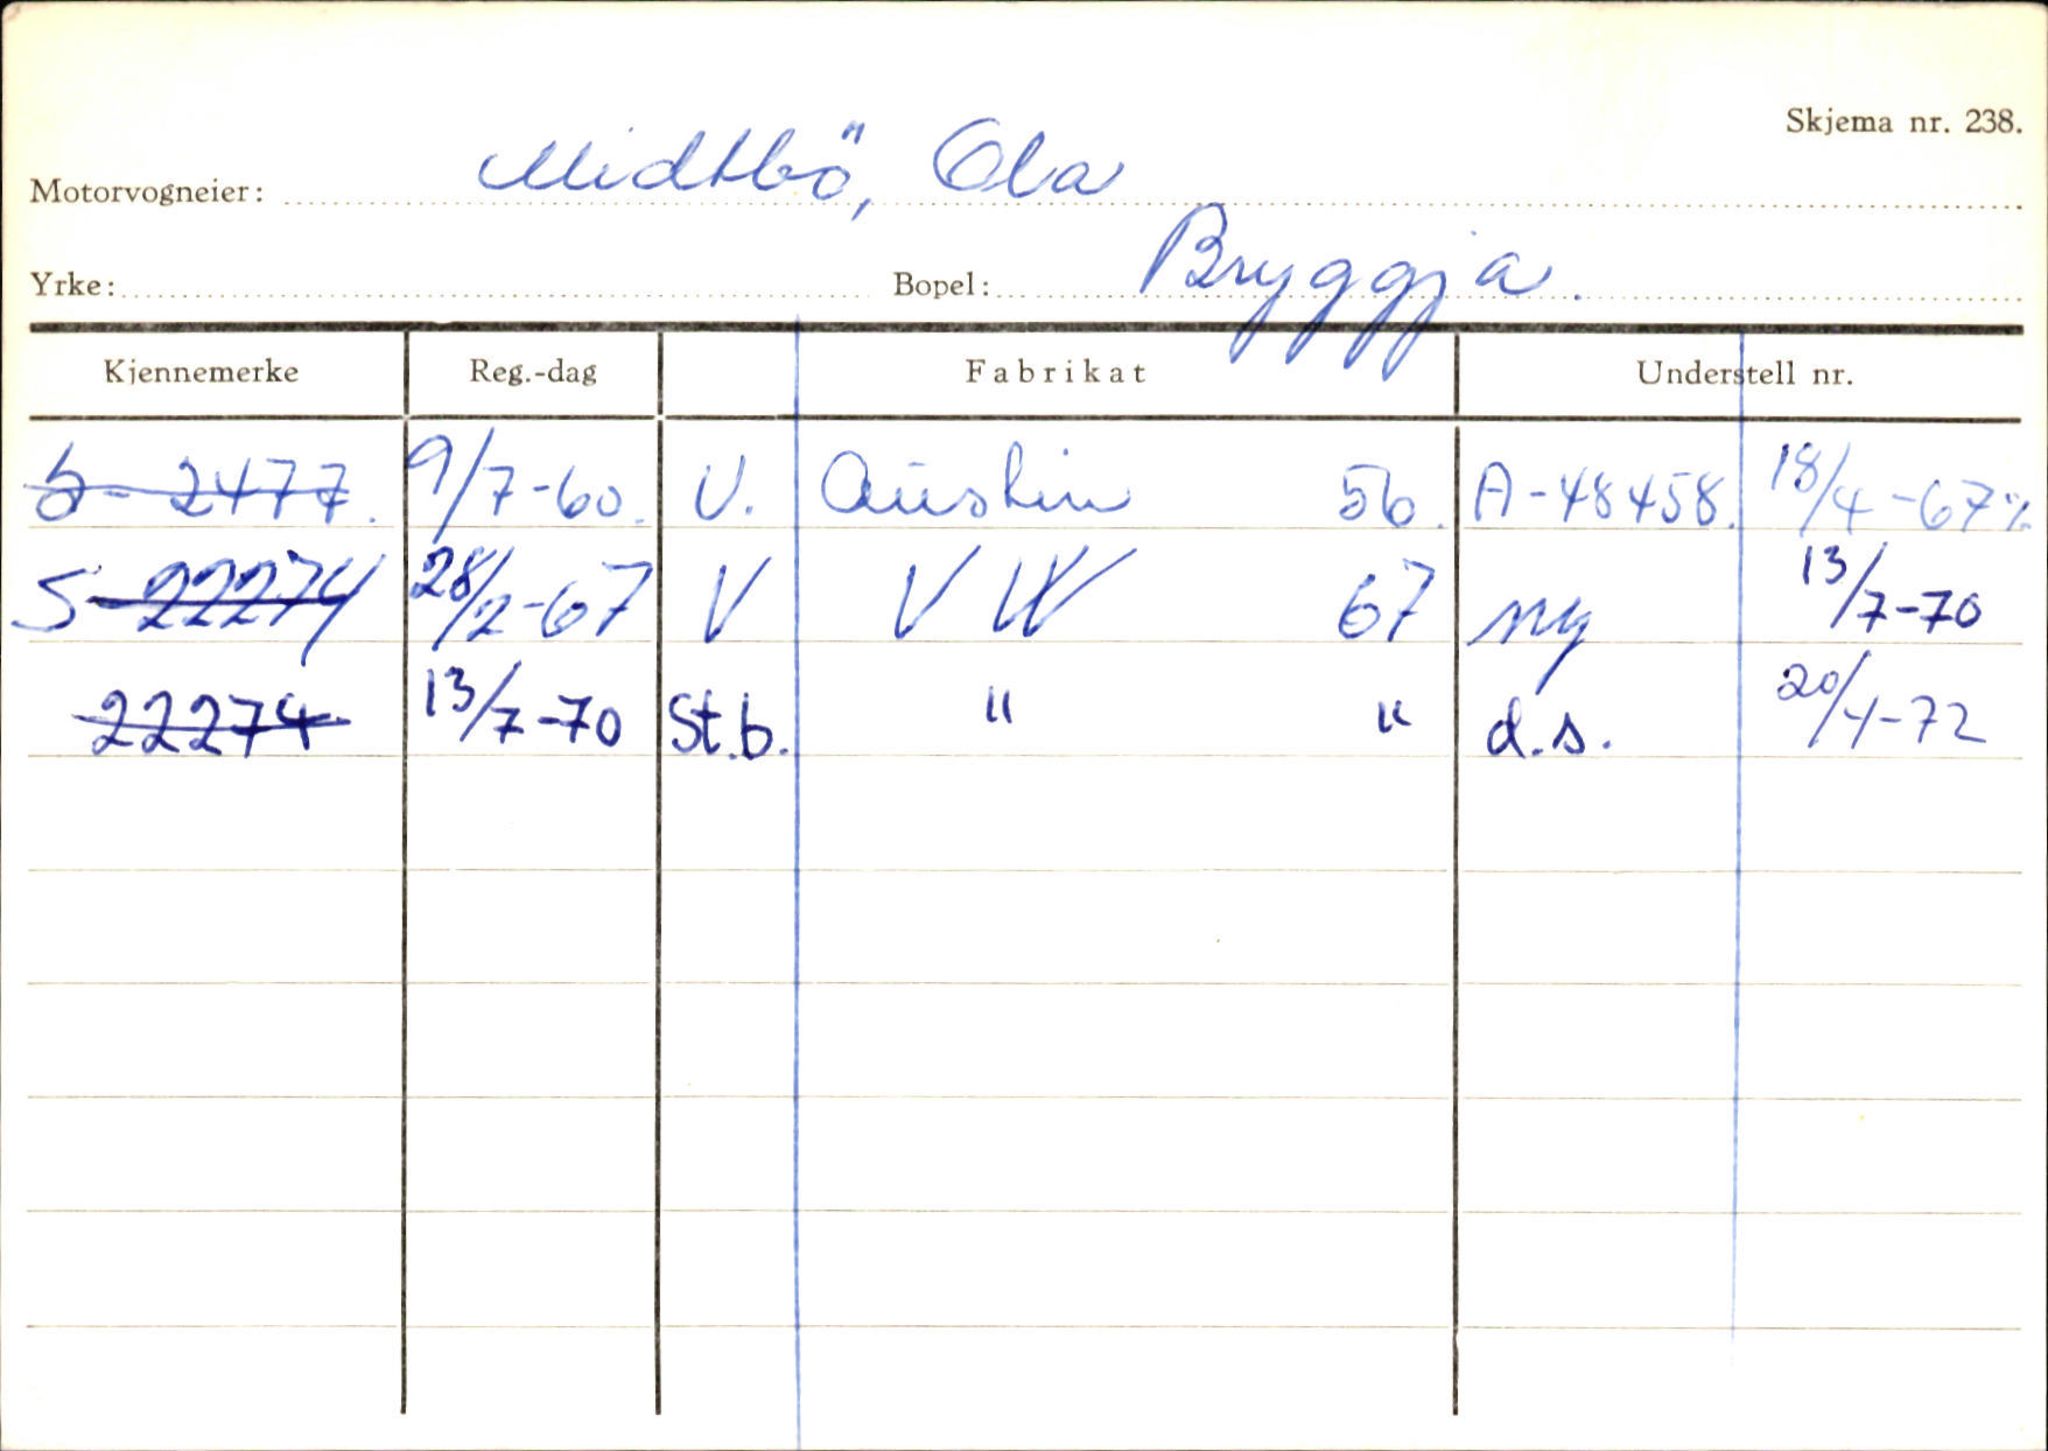 Skjema nr. 238.
Motorvogneier: Midtbö, Ola
Yrke: Bopel: Bryggja.
Kjennemerke Reg.-dag Fabrikat Understell nr.
S-2477. 9/7-60. V. Austin 56. A-48458. 18/4-67%
S-22274 28/2-67 V VW 67 ny 13/7-70
22274 13/7-70 St.b. " " d.s. 20/4-72